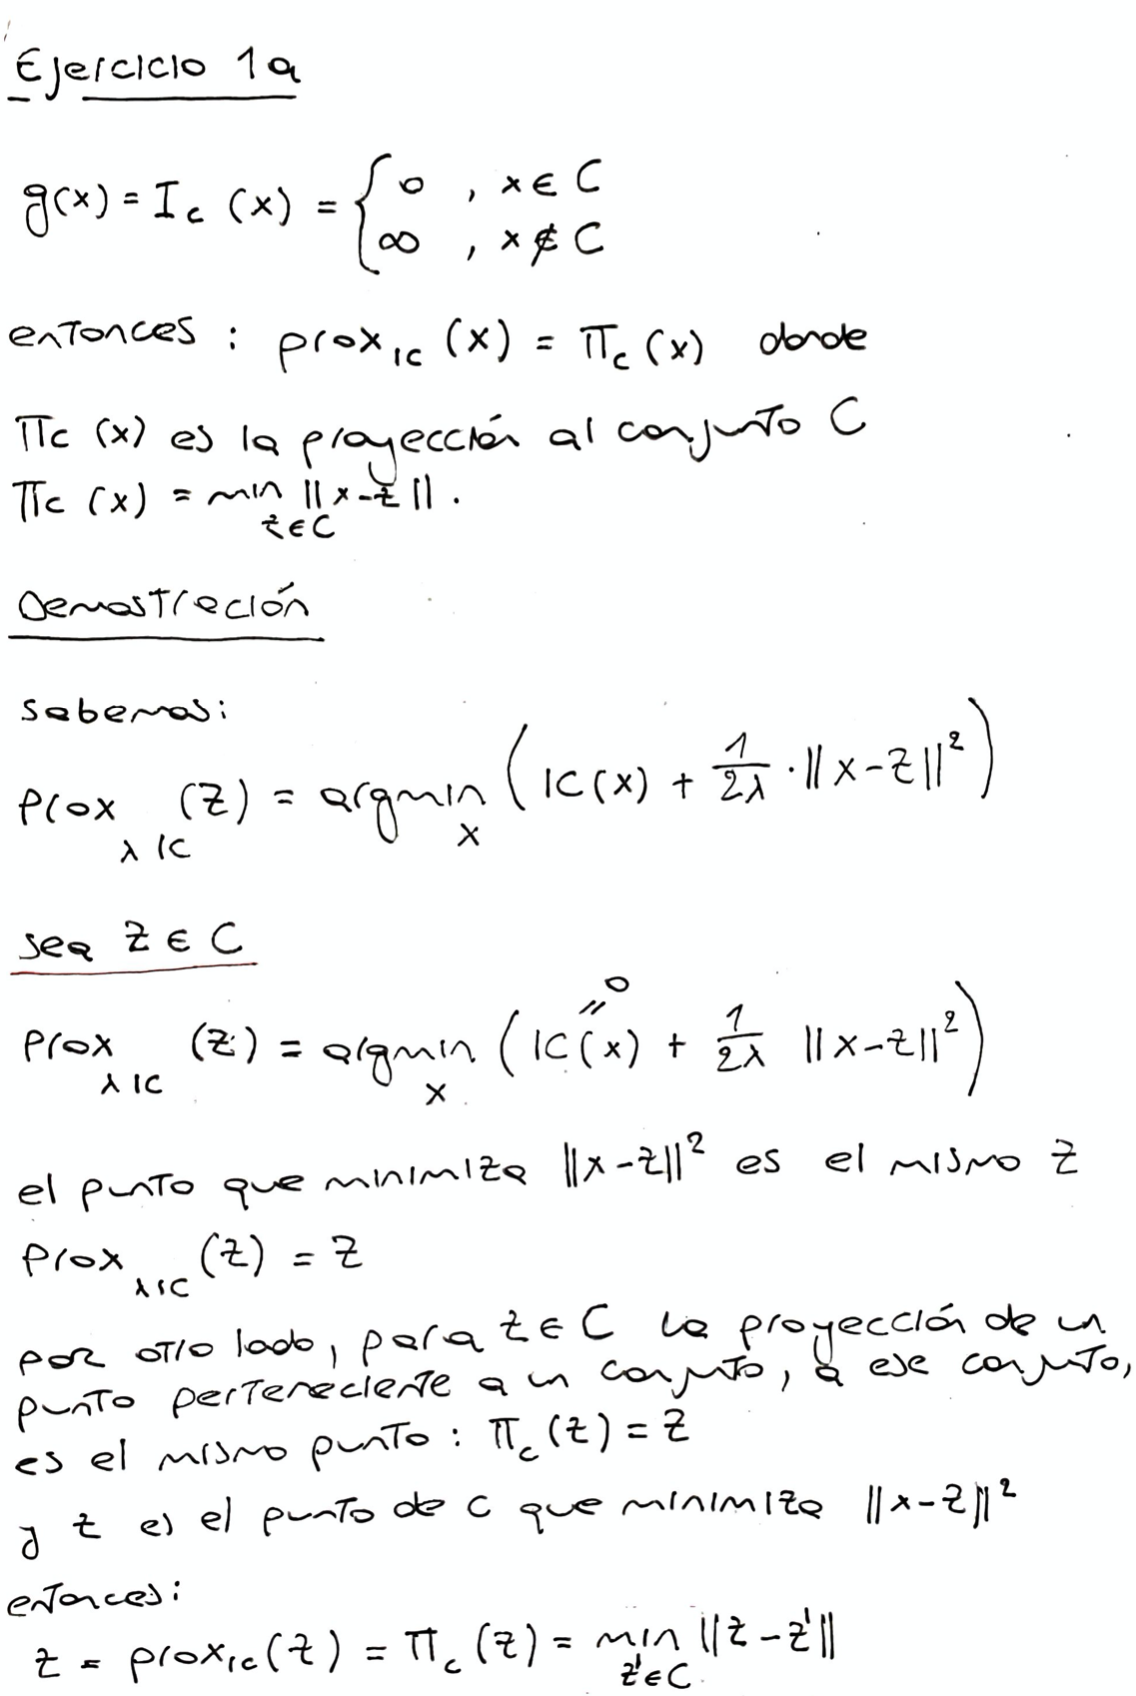 Ejercicio 1a
g(x) = I_c (x) = { 0 , x ∈ C
∞ , x ∉ C
entonces : prox_IC (x) = Π_c (x) donde
Πc (x) es la proyección al conjunto C
Πc (x) = min_{z ∈ C} ||x-z|| .
Demostración
sabemos:
Prox_{λ IC} (z) = argmin_x ( IC(x) + 1/2λ · ||x-z||² )
sea z ∈ C
Prox_{λ IC} (z) = argmin_x ( IC(x) [= 0] + 1/2λ ||x-z||² )
el punto que minimiza ||x-z||² es el mismo z
Prox_{λIC} (z) = z
por otro lado, para z ∈ C la proyección de un
punto perteneciente a un conjunto, a ese conjunto,
es el mismo punto : Π_c (z) = z
y z es el punto de C que minimiza ||x-z||²
entonces:
z = prox_IC (z) = Π_c (z) = min_{z' ∈ C} ||z-z'||